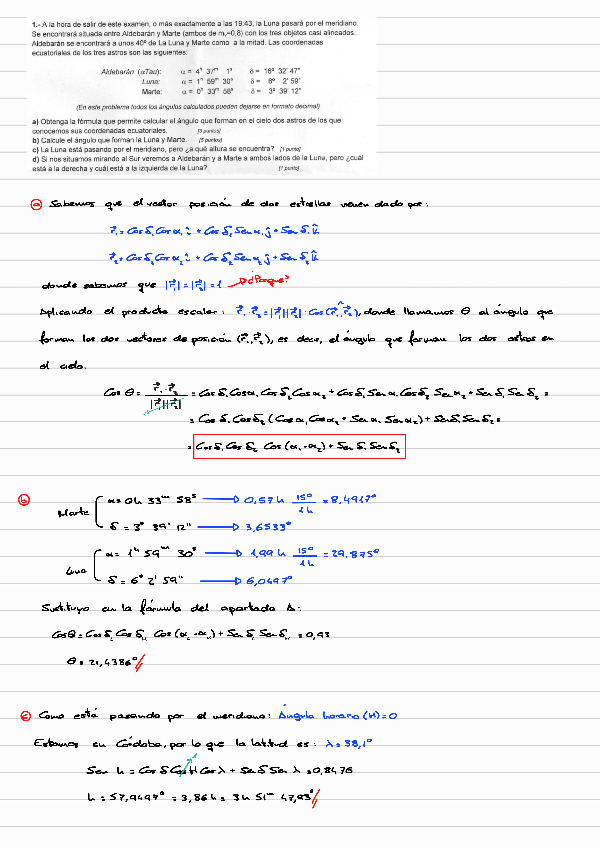 1.- A la hora de salir de este examen, o más exactamente a las 19:43, la Luna pasará por el meridiano.
Se encontrará situada entre Aldebarán y Marte (ambos de m,=0,8) con los tres objetos casi alineados.
Aldebarán se encontrará a unos 40º de La Luna y Marte como a la mitad. Las coordenadas
ecuatoriales de los tres astros son las siguientes:
Aldebarán (αTau): α = 4h 37m 1s δ = 16º 32' 47"
Luna: α = 1h 59m 30s δ = 6º 2' 59"
Marte: α = 0h 33m 58s δ = 3º 39' 12"
(En este problema todos los ángulos calculados pueden dejarse en formato decimal)
a) Obtenga la fórmula que permite calcular el ángulo que forman en el cielo dos astros de los que
conocemos sus coordenadas ecuatoriales. [3 puntos]
b) Calcule el ángulo que forman la Luna y Marte. [5 puntos]
c) La Luna está pasando por el meridiano, pero ¿a qué altura se encuentra? [1 punto]
d) Si nos situamos mirando al Sur veremos a Aldebarán y a Marte a ambos lados de la Luna, pero ¿cuál
está a la derecha y cuál está a la izquierda de la Luna? [1 punto]
a) Sabemos que el vector posición de dos estrellas vienen dado por:
r⃗₁ = Cos δ₁ Cos α₁ î + Cos δ₁ Sen α₁ ĵ + Sen δ₁ k̂
r⃗₂ = Cos δ₂ Cos α₂ î + Cos δ₂ Sen α₂ ĵ + Sen δ₂ k̂
donde sabemos que |r⃗₁| = |r⃗₂| = 1 → ¿Porque?
Aplicando el producto escalar: r⃗₁ · r⃗₂ = |r⃗₁||r⃗₂| · Cos (r⃗₁, r⃗₂), donde llamamos θ al ángulo que
forman los dos vectores de posición (r⃗₁, r⃗₂), es decir, el ángulo que forman los dos astros en
el cielo.
Cos θ = r⃗₁ · r⃗₂ / |r⃗₁||r⃗₂| = Cos δ₁ Cos α₁ Cos δ₂ Cos α₂ + Cos δ₁ Sen α₁ Cos δ₂ Sen α₂ + Sen δ₁ Sen δ₂ =
= Cos δ₁ Cos δ₂ (Cos α₁ Cos α₂ + Sen α₁ Sen α₂) + Sen δ₁ Sen δ₂ =
= Cos δ₁ Cos δ₂ Cos (α₁ - α₂) + Sen δ₁ Sen δ₂
b) Marte α = 0h 33m 58s → 0,57 h 15º/1h = 8,4917º
δ = 3º 39' 12" → 3,6533º
Luna α = 1h 59m 30s → 1,99 h 15º/1h = 29,875º
δ = 6º 2' 59" → 6,0497º
Sustituyo en la fórmula del apartado A:
Cos θ = Cos δ Cos δ Cos (α - α) + Sen δ Sen δ = 0,93
θ = 21,4386º
c) Como está pasando por el meridiano: Ángulo horario (H) = 0
Estamos en Córdoba, por lo que la latitud es: λ = 38,1º
Sen h = Cos δ Cos H Cos λ + Sen δ Sen λ = 0,8476
h = 57,9497º = 3,86 h = 3h 51m 47,93s